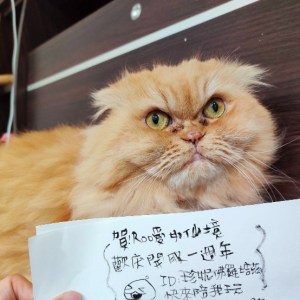 賀!Roo愛の仙境
歡慶開服一週年
ID:珍妮佛羅培茲
快來陪我玩